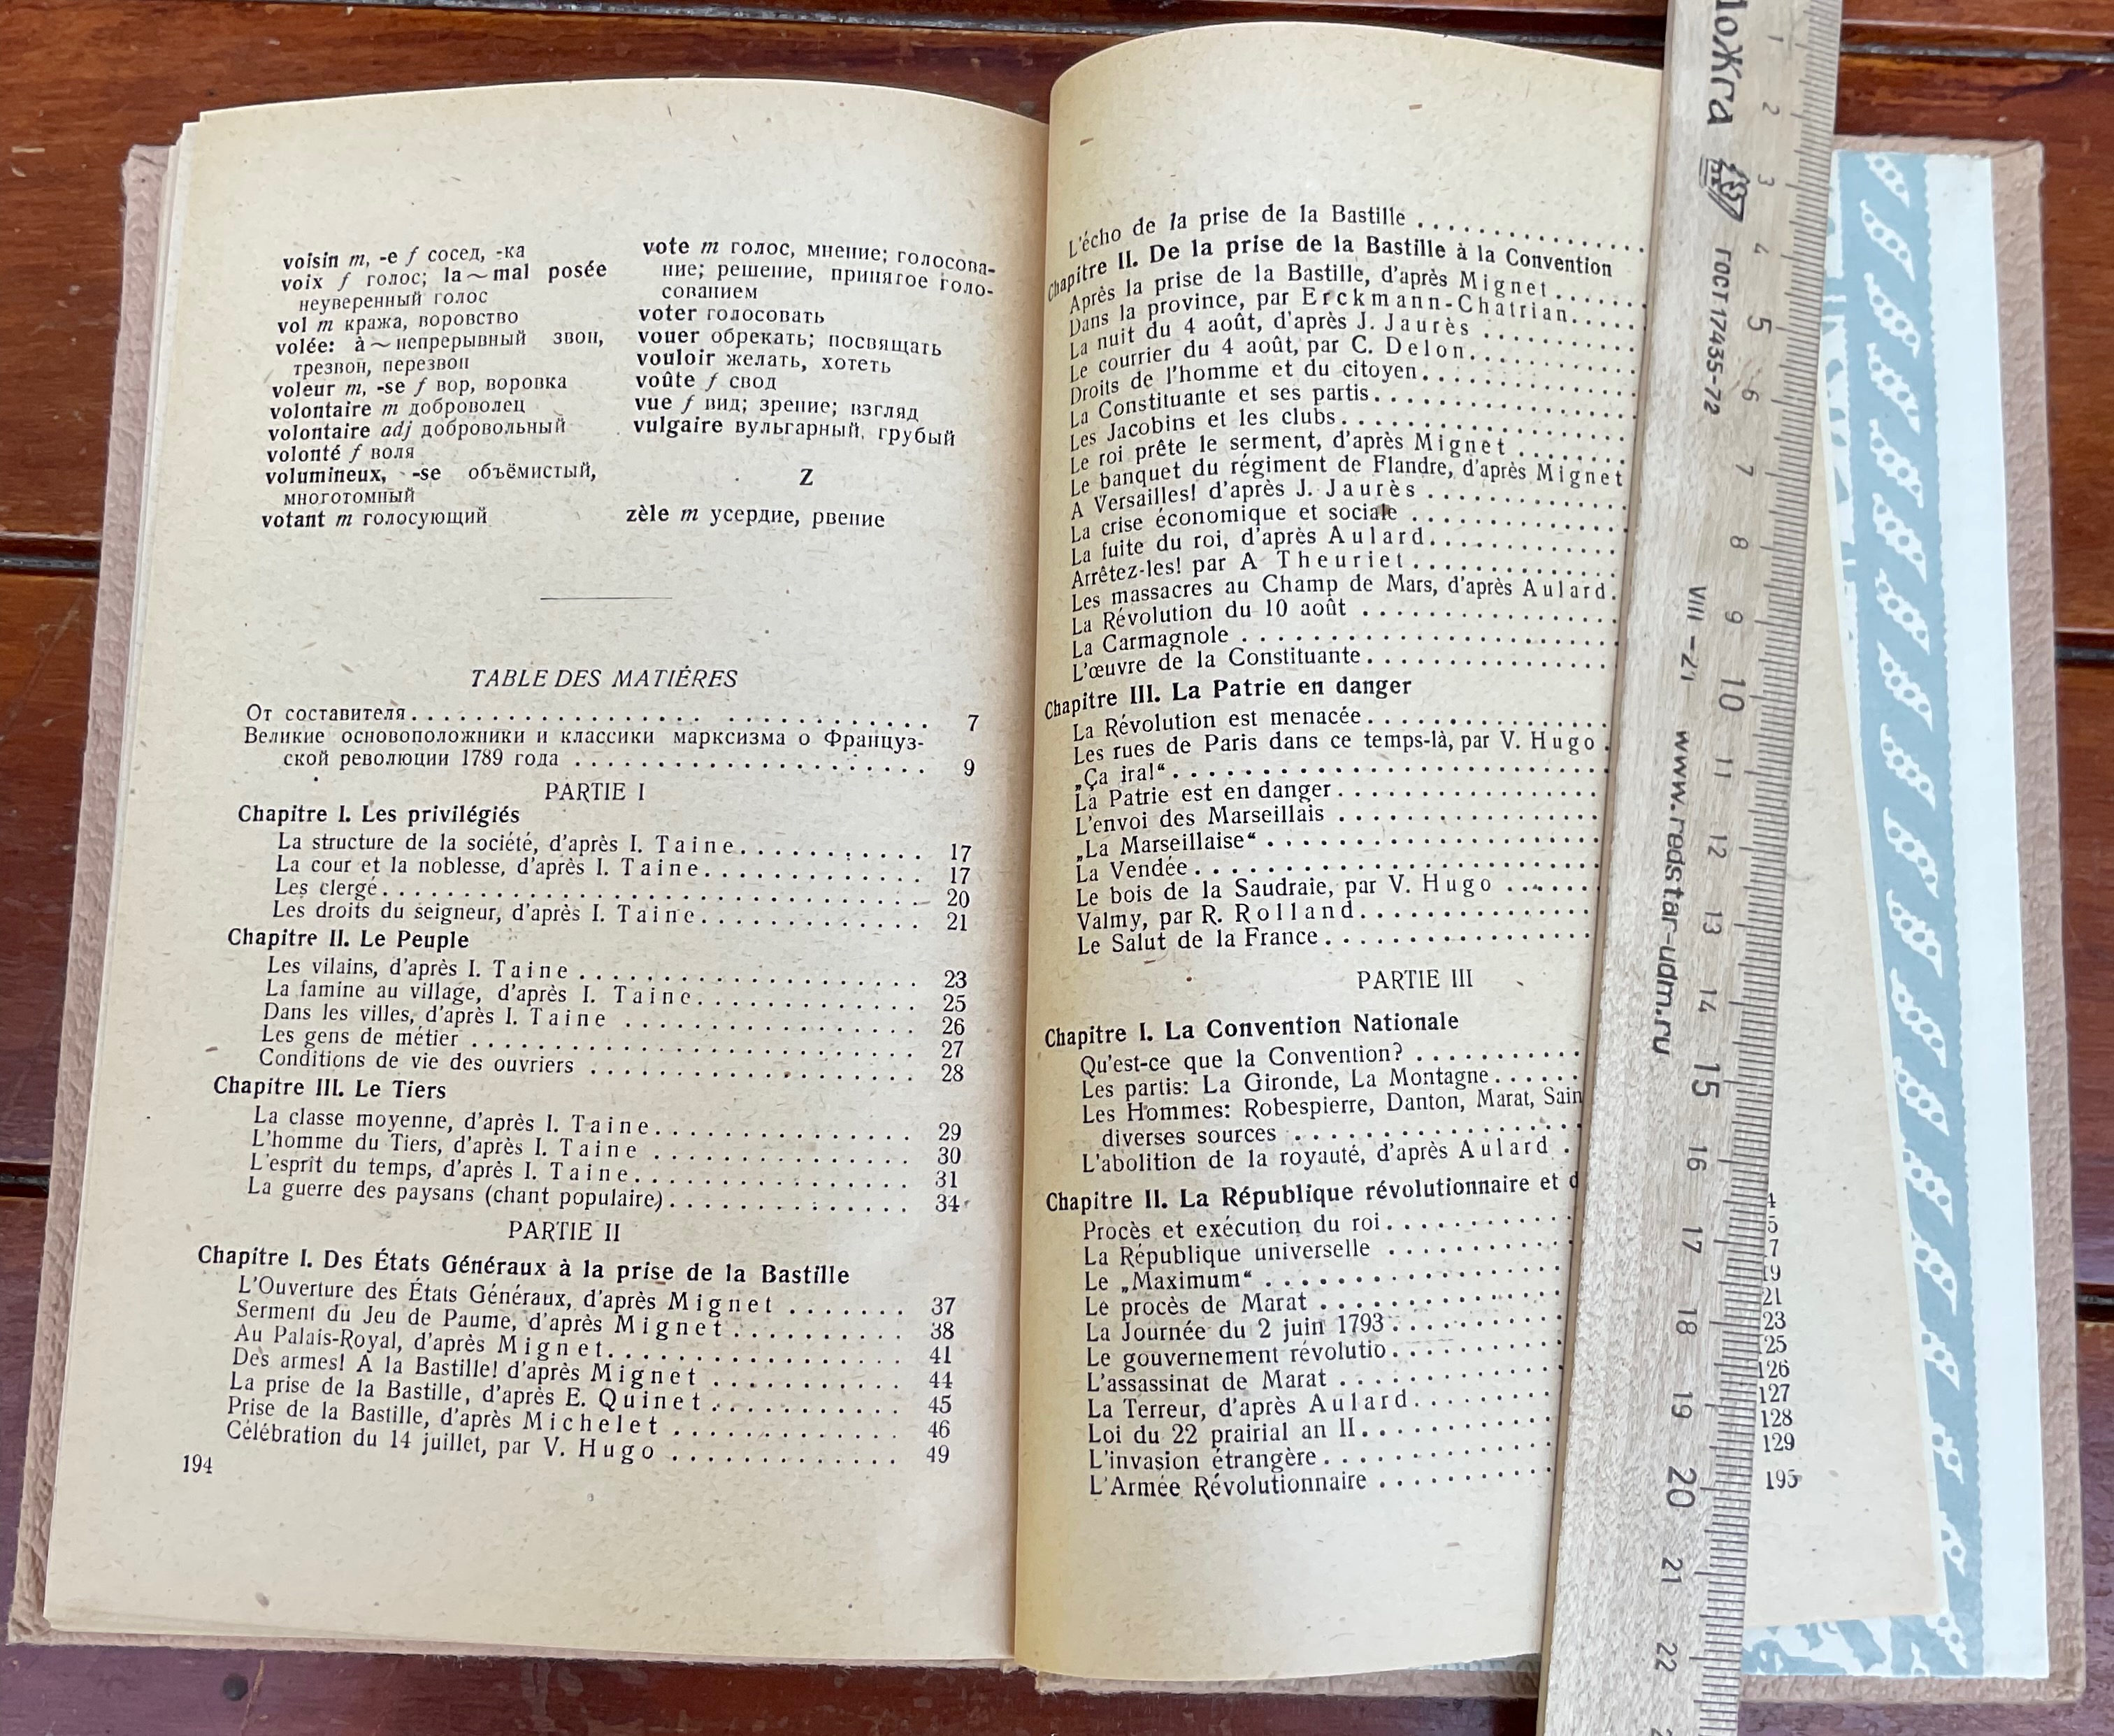 voisin m, -e f сосед, -ка
voix f голос; la ~ mal posée
неуверенный голос
vol m кража, воровство
volée: à ~ непрерывный звон,
трезвон, перезвон
voleur m, -se f вор, воровка
volontaire m доброволец
volontaire adj добровольный
volonté f воля
volumineux, -se объёмистый,
многотомный
votant m голосующий
vote m голос, мнение; голосова-
ние; решение, принятое голо-
сованием
voter голосовать
vouer обрекать; посвящать
vouloir желать, хотеть
voûte f свод
vue f вид; зрение; взгляд
vulgaire вульгарный, грубый
Z
zèle m усердие, рвение
TABLE DES MATIÉRES
От составителя 7
Великие основоположники и классики марксизма о Француз-
ской революции 1789 года 9
PARTIE I
Chapitre I. Les privilégiés
La structure de la société, d'après I. Taine 17
La cour et la noblesse, d'après I. Taine 17
Les clergé 20
Les droits du seigneur, d'après I. Taine 21
Chapitre II. Le Peuple
Les vilains, d'après I. Taine 23
La famine au village, d'après I. Taine 25
Dans les villes, d'après I. Taine 26
Les gens de métier 27
Conditions de vie des ouvriers 28
Chapitre III. Le Tiers
La classe moyenne, d'après I. Taine 29
L'homme du Tiers, d'après I. Taine 30
L'esprit du temps, d'après I. Taine 31
La guerre des paysans (chant populaire) 34
PARTIE II
Chapitre I. Des États Généraux à la prise de la Bastille
L'Ouverture des États Généraux, d'après Mignet 37
Serment du Jeu de Paume, d'après Mignet 38
Au Palais-Royal, d'après Mignet 41
Des armes! A la Bastille! d'après Mignet 44
La prise de la Bastille, d'après E. Quinet 45
Prise de la Bastille, d'après Michelet 46
Célébration du 14 juillet, par V. Hugo 49
194
L'écho de la prise de la Bastille
Chapitre II. De la prise de la Bastille à la Convention
Après la prise de la Bastille, d'après Mignet
Dans la province, par Erckmann-Chatrian
La nuit du 4 août, d'après J. Jaurès
Le courrier du 4 août, par C. Delon
Droits de l'homme et du citoyen
La Constituante et ses partis
Les Jacobins et les clubs
Le roi prête le serment, d'après Mignet
Le banquet du régiment de Flandre, d'après Mignet
A Versailles! d'après J. Jaurès
La crise économique et sociale
La fuite du roi, d'après Aulard
Arrêtez-les! par A Theuriet
Les massacres au Champ de Mars, d'après Aulard
La Révolution du 10 août
La Carmagnole
L'œuvre de la Constituante
Chapitre III. La Patrie en danger
La Révolution est menacée
Les rues de Paris dans ce temps-là, par V. Hugo
„Ça ira!“
La Patrie est en danger
L'envoi des Marseillais
„La Marseillaise“
La Vendée
Le bois de la Saudraie, par V. Hugo
Valmy, par R. Rolland
Le Salut de la France
PARTIE III
Chapitre I. La Convention Nationale
Qu'est-ce que la Convention?
Les partis: La Gironde, La Montagne
Les Hommes: Robespierre, Danton, Marat, Sain
diverses sources
L'abolition de la royauté, d'après Aulard
Chapitre II. La République révolutionnaire et d
Procès et exécution du roi 4
La République universelle 5
Le „Maximum“ 7
Le procès de Marat 19
La Journée du 2 juin 1793 21
Le gouvernement révolutio 23
L'assassinat de Marat 25
La Terreur, d'après Aulard 126
Loi du 22 prairial an II 127
L'invasion étrangère 128
L'Armée Révolutionnaire 129
195
ГОСТ 17435-72 VII-21 www.redstar-udm.ru
1 2 3 4 5 6 7 8 9 10 11 12 13 14 15 16 17 18 19 20 21 22